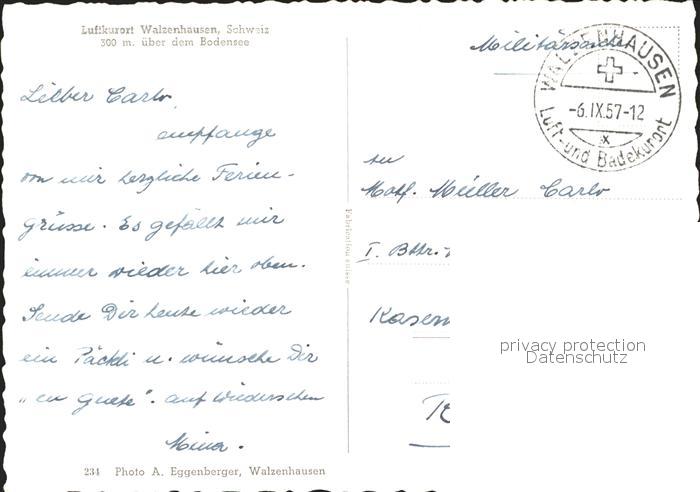 Luftkurort Walzenhausen, Schweiz
300 m. über dem Bodensee
Lieber Carlo,
empfange
von mir herzliche Ferien-
grüsse. Es gefällt mir
immer wieder hier oben.
Sende Dir heute wieder
ein Päckli u. wünsche Dir
„en guete". auf Wiedersehen
234 Photo A. Eggenberger, Walzenhausen
Militärsache
WALZENHAUSEN
-6.IX.57-12
Luft- und Badekurort
x
an
Motf. Müller Carlo
I. Bttr.
Kasern
privacy protection
Datenschutz